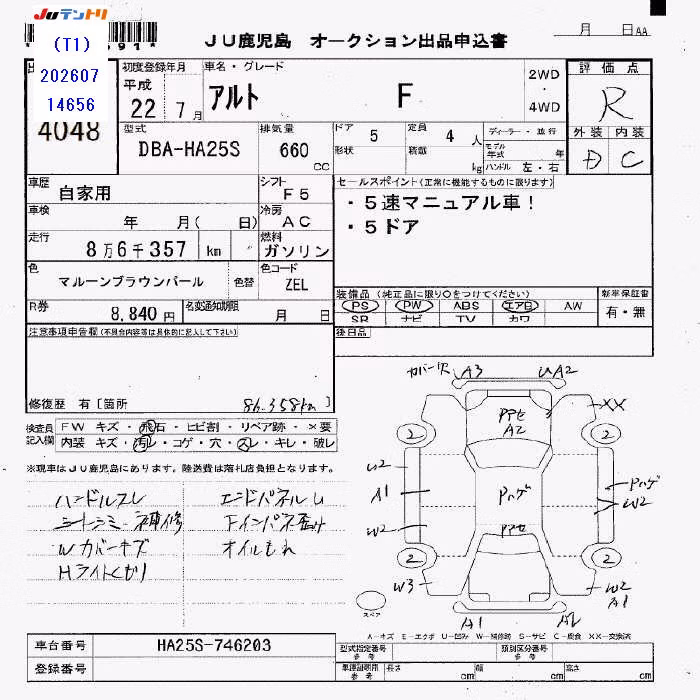 JUテントリ
(T1)
202607
14656
4048
JU鹿児島 オークション出品申込書
月 日 AA
初度登録年月
平成
22年 7月
車名・グレード
アルト F
2WD
・
4WD
評価点
R
外装 内装
D C
型式
DBA-HA25S
排気量
660 CC
ドア 5
形状
定員 4 人
積載 kg
ディーラー・並行
モデル年式 年
ハンドル 左・右
車歴
自家用
シフト
F5
車検
年 月( 日)
冷房
AC
走行
8万6千357 km
燃料
ガソリン
色
マルーンブラウンパール
色替
色コード
ZEL
R券
8,840円
名変通知期限
月 日
セールスポイント(正常に機能するものに限ります)
・5速マニュアル車!
・5ドア
装備品(純正品に限り○をつけてください)
PS PW ABS エアB AW
SR ナビ TV カワ
新車保証書
有・無
後日品
注意事項申告欄(不具合内容等は具体的に記入して下さい)
修復歴 有[箇所 86,358km ]
検査員記入欄
FW キズ・飛石・ヒビ割・リペア跡・×要
内装 キズ・汚れ・コゲ・穴・スレ・キレ・破レ
※現車はJU鹿児島にあります。陸送費は落札店負担となります。
ハンドルスレ
エンドパネルU
シートシミ 補修
Wカバーキズ
オイルもれ
Hライトくもり
カバー欠 A3
UA2
XX
A2
2 2
U2
A1
W2
Pハゲ
Pハゲ
W2
2 2
W3
W2
A1
A1
A2
スペア
A-キズ E-エクボ U-凹み W-補修跡 S-サビ C-腐食 XX-交換済
車台番号
HA25S-746203
登録番号
型式指定番号
参考
類別区分番号
参考
車庫証明用
参考
長さ cm
幅 cm
高さ cm